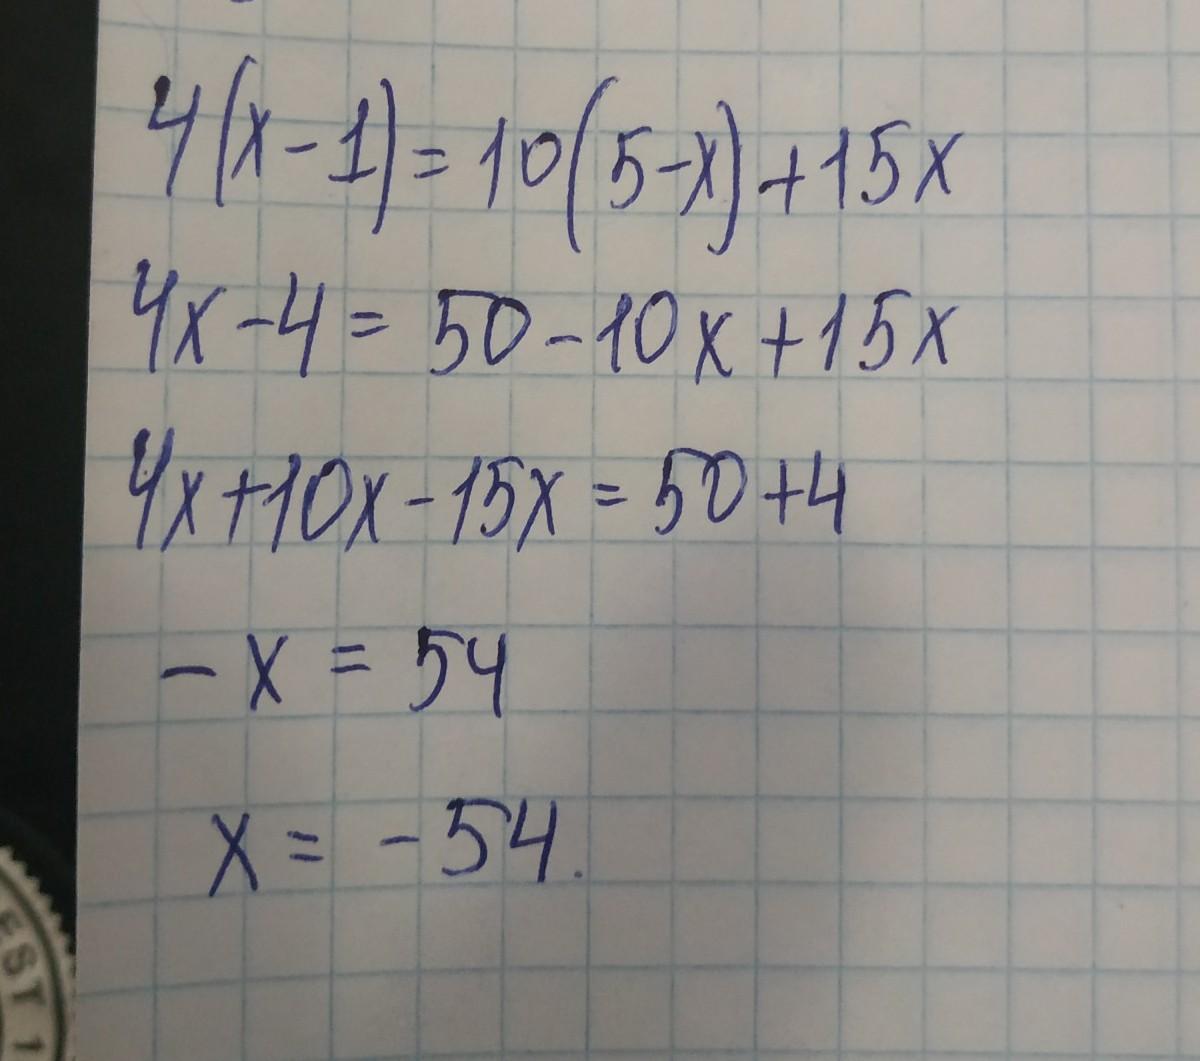 4(x-1)=10(5-x)+15x
4x-4=50-10x+15x
4x+10x-15x=50+4
-x=54
x=-54.
EST 1